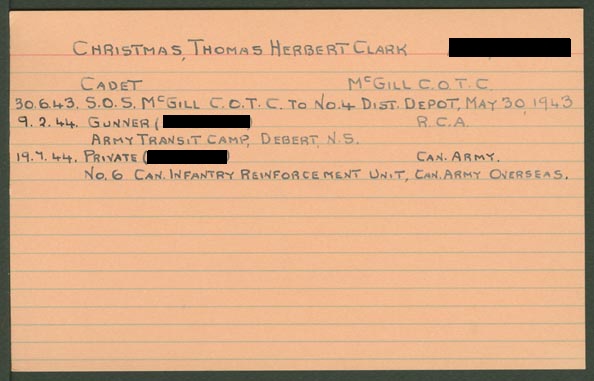 CHRISTMAS, THOMAS HERBERT CLARK
CADET McGILL C.O.T.C.
30.6.43. S.O.S. McGILL C.O.T.C. TO NO.4 DIST. DEPOT, MAY 30, 1943
9.2.44. GUNNER ( ) R.C.A.
ARMY TRANSIT CAMP, DEBERT, N.S.
19.7.44. PRIVATE ( ) CAN. ARMY.
NO.6 CAN. INFANTRY REINFORCEMENT UNIT, CAN. ARMY OVERSEAS.